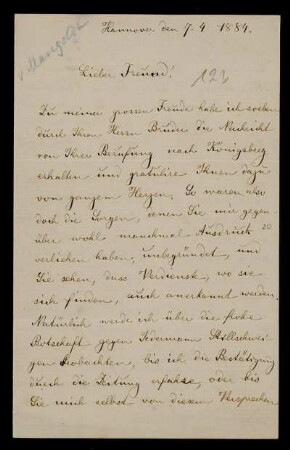 Hannover den 7. 4 1884.
v. Mangoldt
123
Lieber Freund!
Zu meiner grossen Freude habe ich soeben
durch Ihren Herrn Bruder die Nachricht
von Ihrer Berufung nach Königsberg
erhalten und gratulire Ihnen dazu
von ganzem Herzen. So waren also
doch die Sorgen, denen Sie mir gegen
über wohl manchmal Ausdruck
verliehen haben, unbegründet, und
Sie sehen, dass Verdienste, wo sie
sich finden, auch anerkannt werden.
Natürlich werde ich über die frohe
Botschaft gegen Jedermann Stillschwei
gen beobachten, bis ich die Bestätigung
durch die Zeitung erfahre, oder bis
Sie mich selbst von diesem Versprechen